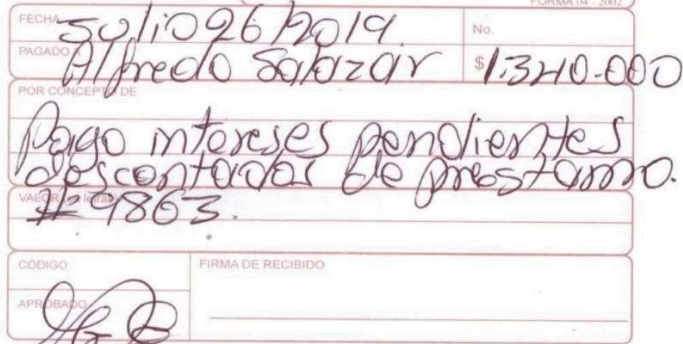 FORMA 04 - 2002
FECHA Julio 26/2019 No.
PAGADO A Alfredo Salazar $ 1.340.000
POR CONCEPTO DE
Pago intereses pendientes
descontados de prestamo.
VALOR (en letras) # 9863.
CÓDIGO FIRMA DE RECIBIDO
APROBADO